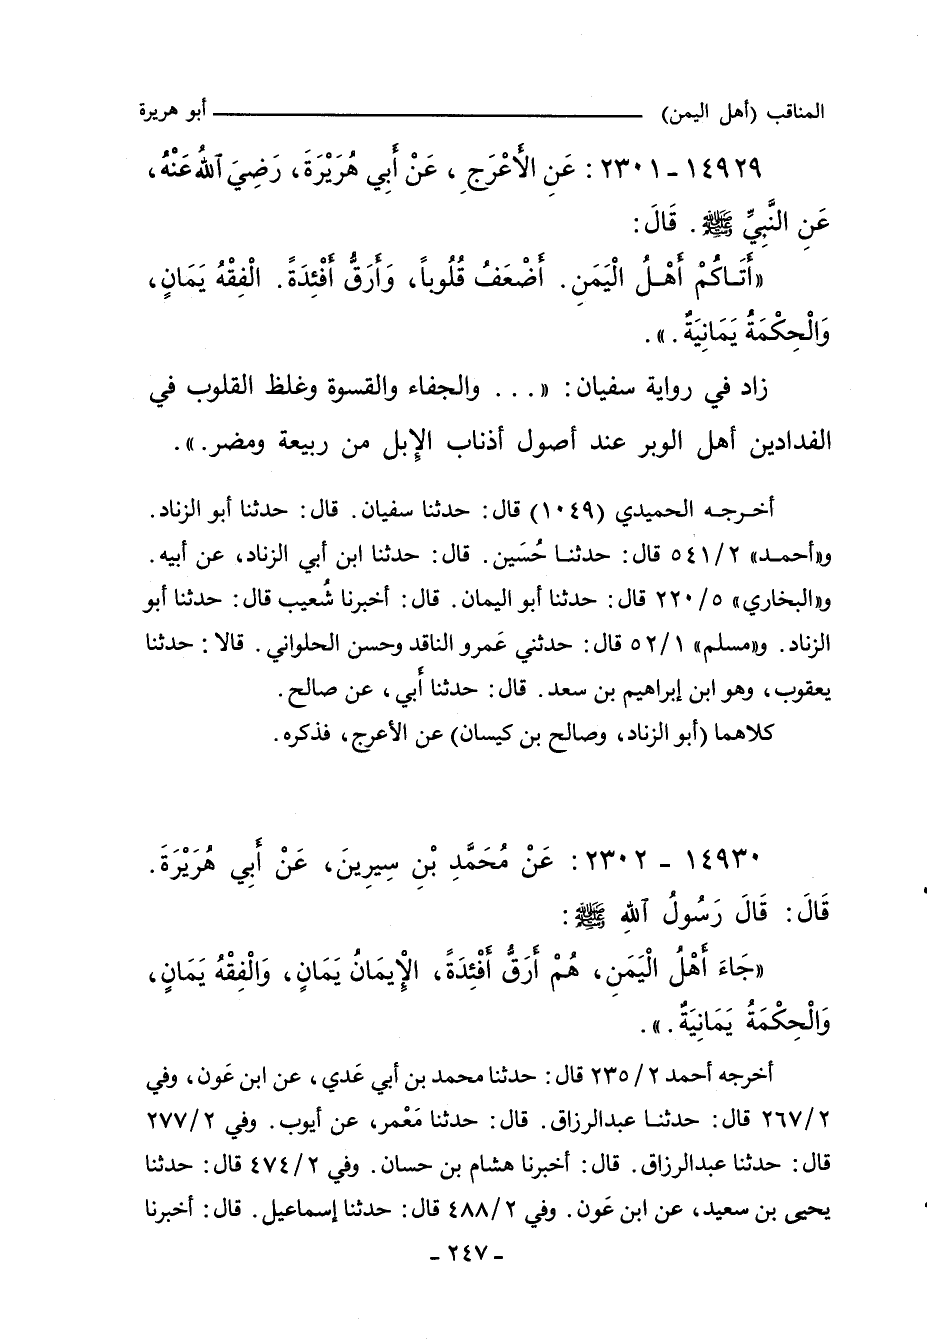 المناقب (أهل اليمن) ـــــــــــــــــــــــــ أبو هريرة
١٤٩٢٩ - ٢٣٠١ : عَنِ الأَعْرَجِ ، عَنْ أَبِي هُرَيْرَةَ، رَضِيَ اللهُ عَنْهُ،
عَنِ النَّبِيِّ ﷺ . قَالَ:
«أَتَاكُمْ أَهْلُ الْيَمَنِ. أَضْعَفُ قُلُوباً، وَأَرَقُّ أَفْئِدَةً. الْفِقْهُ يَمَانٍ،
وَالْحِكْمَةُ يَمَانِيَةٌ.».
زاد في رواية سفيان: «. . . والجفاء والقسوة وغلظ القلوب في
الفدادين أهل الوبر عند أصول أذناب الإِبل من ربيعة ومضر.».
أخرجه الحميدي (١٠٤٩) قال: حدثنا سفيان. قال: حدثنا أبو الزناد.
و«أحمد» ٥٤١/٢ قال: حدثنا حُسَين. قال: حدثنا ابن أبي الزناد، عن أبيه.
و«البخاري» ٢٢٠/٥ قال: حدثنا أبو اليمان. قال: أخبرنا شُعيب قال: حدثنا أبو
الزناد. و«مسلم» ٥٢/١ قال: حدثني عَمرو الناقد وحسن الحلواني. قالا: حدثنا
يعقوب، وهو ابن إبراهيم بن سعد. قال: حدثنا أَبي، عن صالح.
كلاهما (أبو الزناد، وصالح بن كيسان) عن الأعرج، فذكره.
١٤٩٣٠ - ٢٣٠٢ : عَنْ مُحَمَّدِ بْنِ سِيرِينَ، عَنْ أَبِي هُرَيْرَةَ.
قَالَ: قَالَ رَسُولُ اللهِ ﷺ:
«جَاءَ أَهْلُ الْيَمَنِ، هُمْ أَرَقُّ أَفْئِدَةً، الإِيمَانُ يَمَانٍ، وَالْفِقْهُ يَمَانٍ،
وَالْحِكْمَةُ يَمَانِيَةٌ.».
أخرجه أحمد ٢٣٥/٢ قال: حدثنا محمد بن أبي عَدي، عن ابن عَون، وفي
٢٦٧/٢ قال: حدثنا عبدالرزاق. قال: حدثنا مَعْمر، عن أيوب. وفي ٢٧٧/٢
قال: حدثنا عبدالرزاق. قال: أخبرنا هشام بن حسان. وفي ٤٧٤/٢ قال: حدثنا
يحيى بن سعيد، عن ابن عَون. وفي ٤٨٨/٢ قال: حدثنا إسماعيل. قال: أخبرنا
- ٢٤٧ -